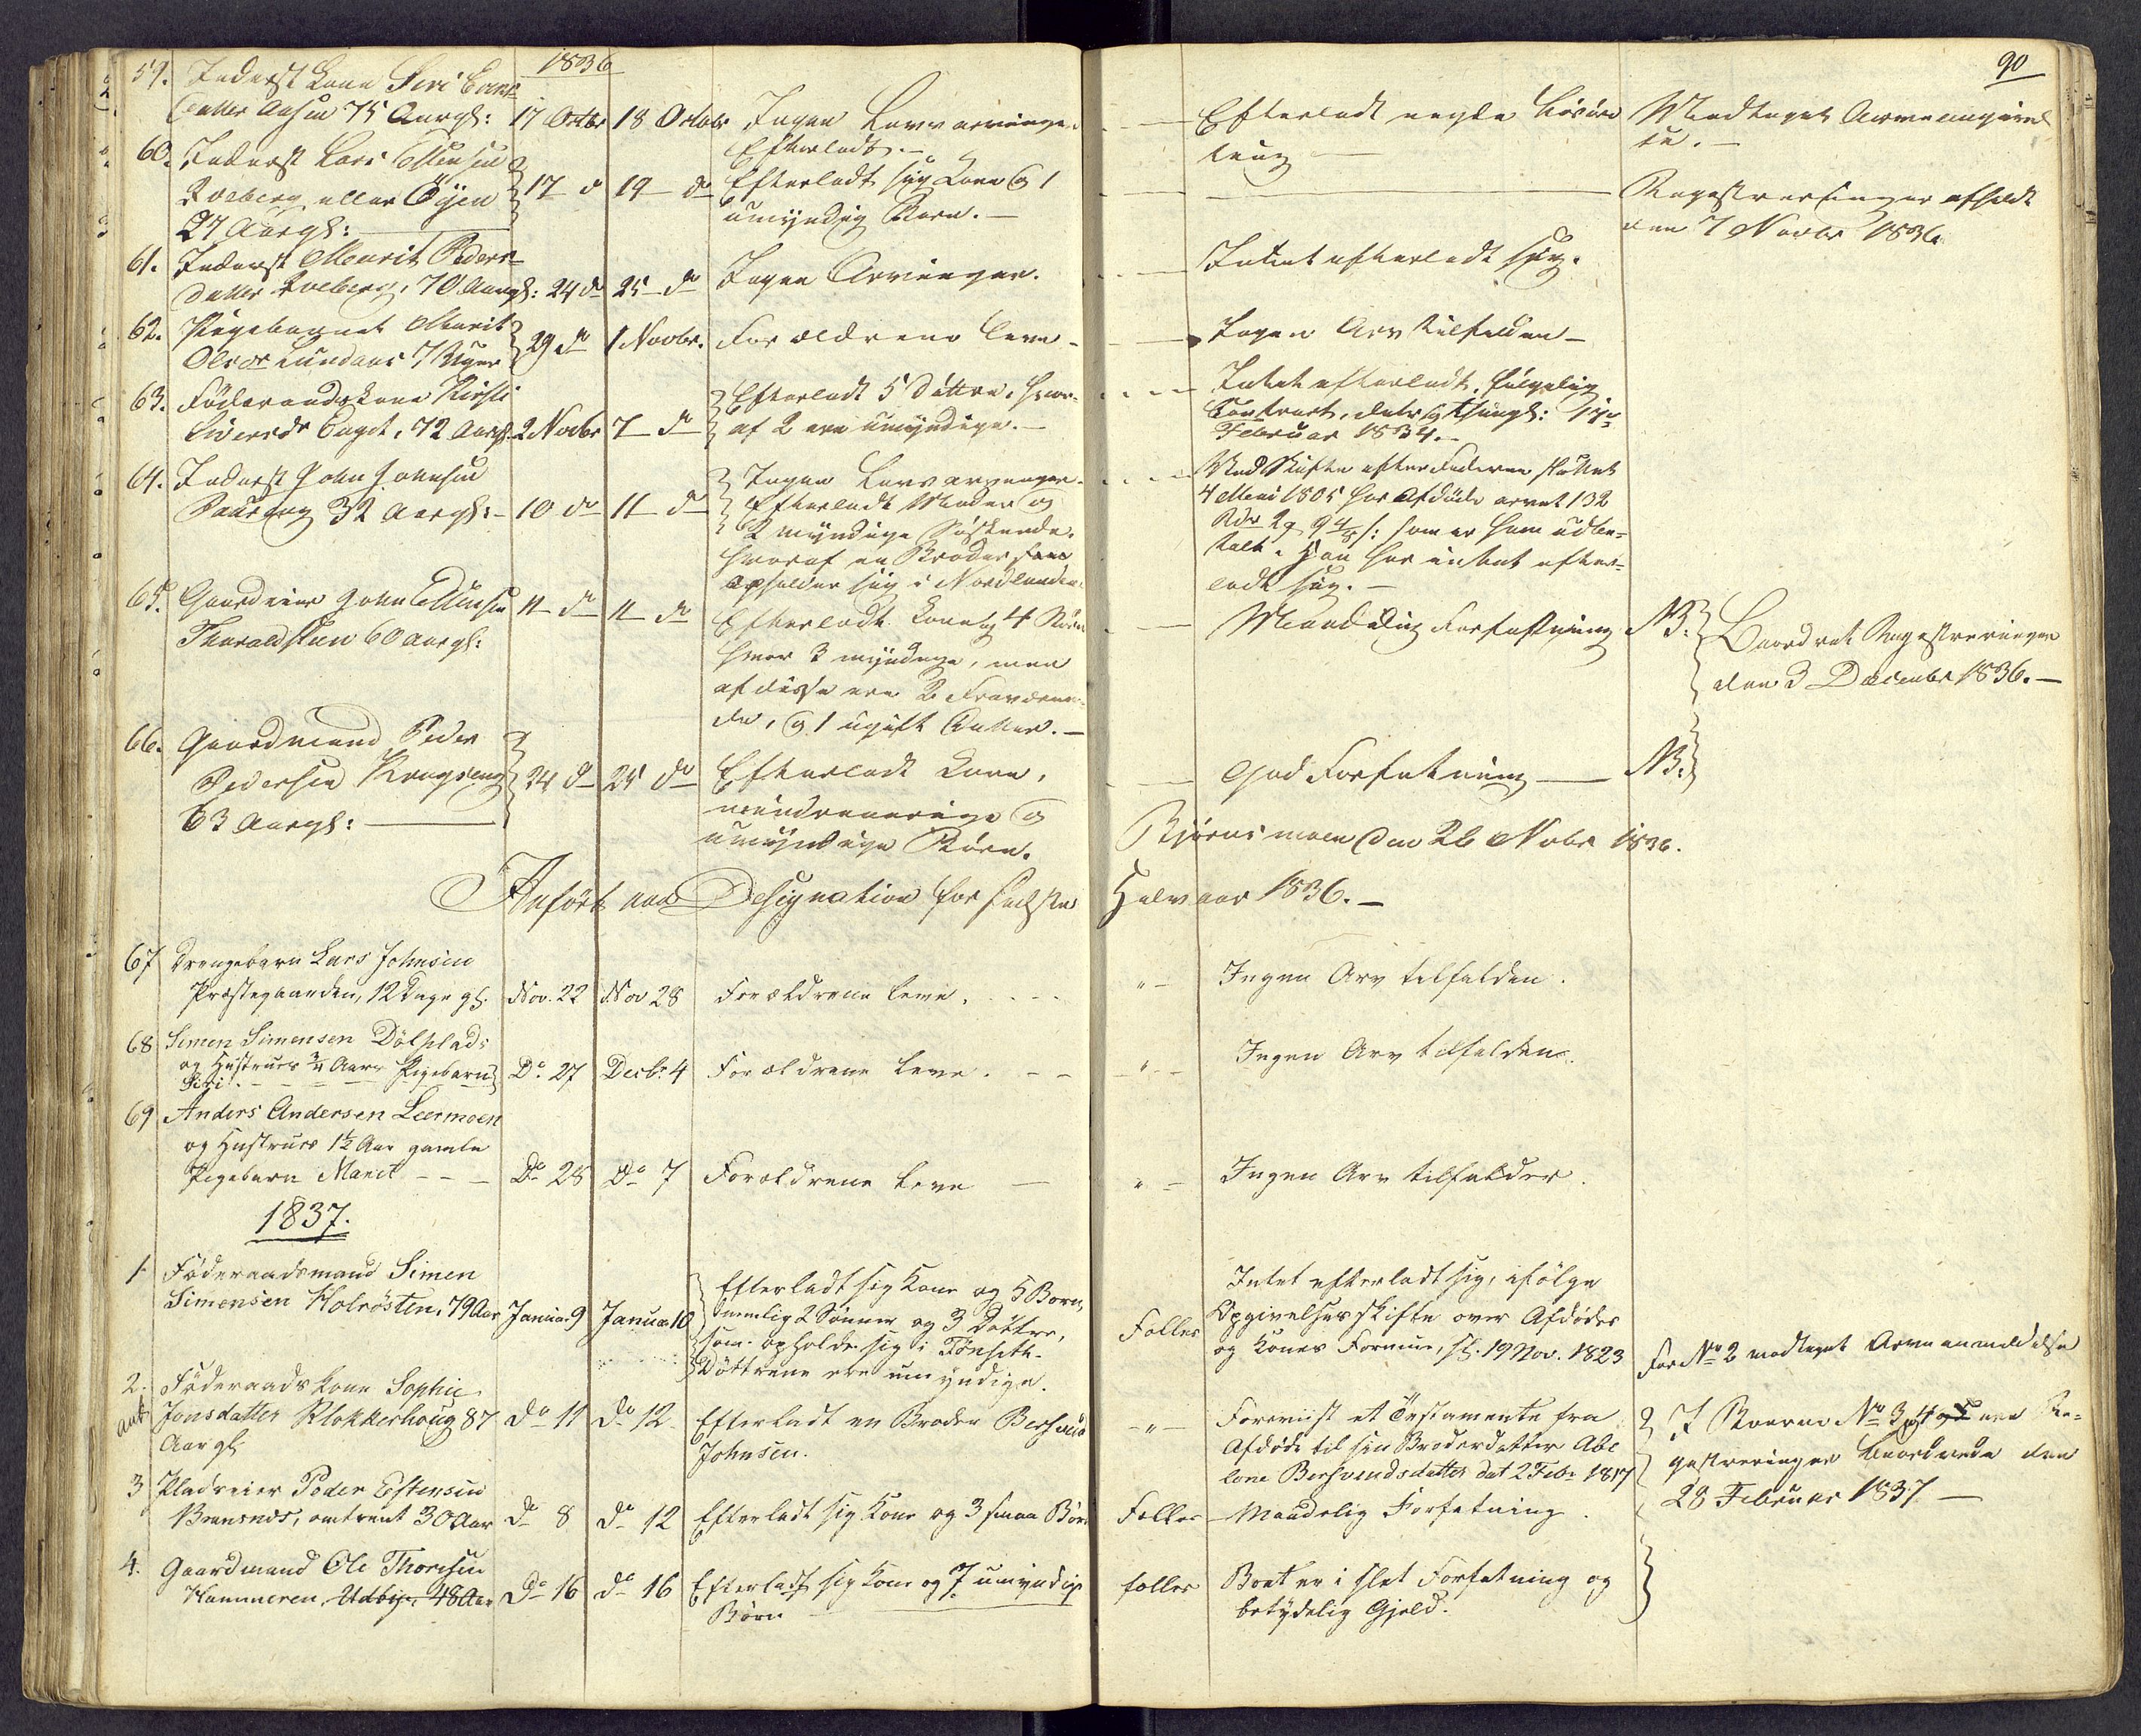 1836
90
59. Inderst Kone Siri Evens
datter Aasen 75 Aargl: 17 Octbr 18 Octobr Ingen Livsarvinger
Efterladt.-
Efterladt nogle
Modtaget
60. Inderst Lars Estensen
Roeberg eller Öÿen
27 Aargl:
17 d 19 do Efterladt sig Kone og 1
umÿndig Barn.-
Registreringen afholdt
den 7 Novbr 1836
61. Inderst Marit Peders-
datter Roeberg, 70 Aargl: 24 do 25 do Ingen Arvinger.
Intet efterladt sig.
62. Pigebarnet Marit
Olsdr Lundaas 7 Uger 29 do 1 Novbr. Forældrene leve -
Ingen Arv tilfalden -
63. Föderaadskone Kirsti
Siversdr Enget, 72 Aargl. 2 Novbr 7 do Efterladt 5 döttre, hvor-
af 2 ere umÿndige.-
Intet efterladt, fölgelig
Contract, 
Februar 1834.-
64. Inderst John Johnsen
32 Aargl:- 10 do 11 do
Ingen Livsarvinger.
Efterladt Moder og
2 mÿndige Söskende.
hvoraf en Broder som
opholder sig i Nordlanden
Ved Skifte efter Faderen sluttet
4 Mai 1805 har Afdöde arvet 132
som er ham udbe-
talt. Han har intet efter-
ladt sig.-
65. Gaardeier John Estensen
Tharaldstuen 60 Aargl:
11 do 11 do
Efterladt Kone og 4 Börn
hvor 3 mÿndige, men
af disse ere 2 Fraværen-
de, og 1 ugift Datter.-
Maadelig Forfatning NB:
Beordret Registreringen
den 3 December 1836.-
66. Gaardmand Peder
Pedersen Krogseng
63 Aargl:
24 do 25 do Efterladt Kone,
mindreaarige og
umÿndige Börn.
God Forfatning NB:
Bjørnsmoen den 26 Novbr 1836.
Anfört paa Designation for sidste Halvaar 1836.-
67 Drengebarn Lars Johnsen
Præstegaarden, 12 Dage gl. Nov. 22 Nov 28 Forældrene leve.
" - Ingen Arv tilfalden.
68 Simen Simensen Dölplads
og Hustrues 3/4 Aars Pigebarn
Siri.
Do. 27 Decbr. 4 Forældrene leve.
" - Ingen Arv tilfalden.
69 Anders Andersen Leermoen
og Hustrues 1½ Aar gamle
Pigebarn Marit - - - Do 28 Do 7 Forældrene leve -
" - Ingen Arv tilfalden.
1837.
1 Föderaadsmand Simen
Simensen Holrösten, 79 Aar Januar 9 Januar 10
Efterladt sig Kone og 5 Börn,
nemlig 2 Sönner og 3 Döttre,
som opholde sig i Tönseth.
Döttrene ere umyndige.
Fælles
Intet efterladt sig, ifölge
Opgivelsesskifte over Afdödes
og Kones Formue, sl. 19 Nov. 1823
For No 2 modtaget Arveanmeldelse
2. Föderaadskone Sophie
Jonsdatter Klokkerhoug 87
Aar gl.
anf.
Do 11 Do 12 Efterladt en Broder Bersvend
Johnsen.
- " - Foreviist et Testamente fra
Afdöde til sin Broderdatter Abe
lone Bersvendsdatter dat 2 Febr. 1817
I Boerne No 3 og 4 ere Re-
gistreringen beordrede den
28 Februar 1837 -
3 Pladseier Peder Estensen
Brænsnes, omtrent 30 Aar Do 8 Do 12 Efterladt sig Kone og 3 smaa Börn
Fælles - Maadelig Forfatning.
4. Gaardmand Ole Thoresen
Hammeren, Udby, 48 Aar Do 16 Do 16 Efterladt sig Kone og 7 umyndige
Börn
fælles Boet er i slet Forfatning og
betydelig Gjeld.